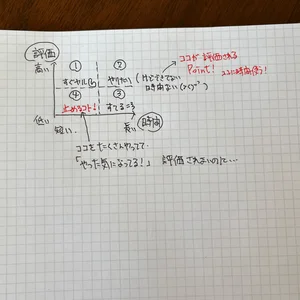 評価
高い
①
すぐヤル
②
やりたい
ほとんどできてない
時間ない
ココが評価される
Point!
ココに時間使う!
④
止めるコト!
③
すてるころ
低い
短い
長い
時間
ココをたくさんやってて
「やった気になってる!」 評価されないのに…